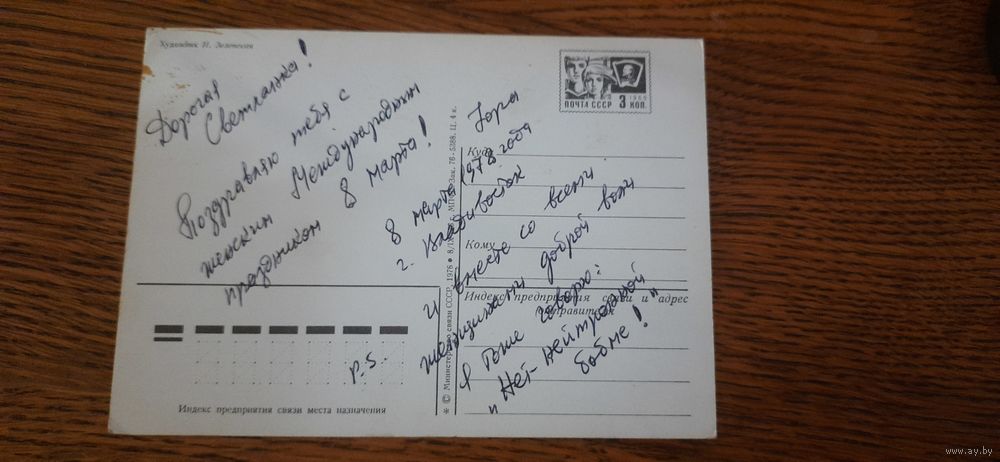 Художник И.
Дорогая
Светланка!
Поздравляю тебя с
Международным
женским
праздником 8 марта!
Юра
8 марта 1978 года
г. Владивосток
P.S.
И вместе со всеми
женщинами доброй воли
я тоже говорю:
"Нет-нейтронной
бомбе!"
ПОЧТА СССР 3 КОП.
1966
Куда
Кому
Индекс предприятия связи и адрес
отправителя
Индекс предприятия связи места назначения
© Министерство связи СССР, 1976
Зак. 76-5388. Ц. 4 к.
www.ay.by